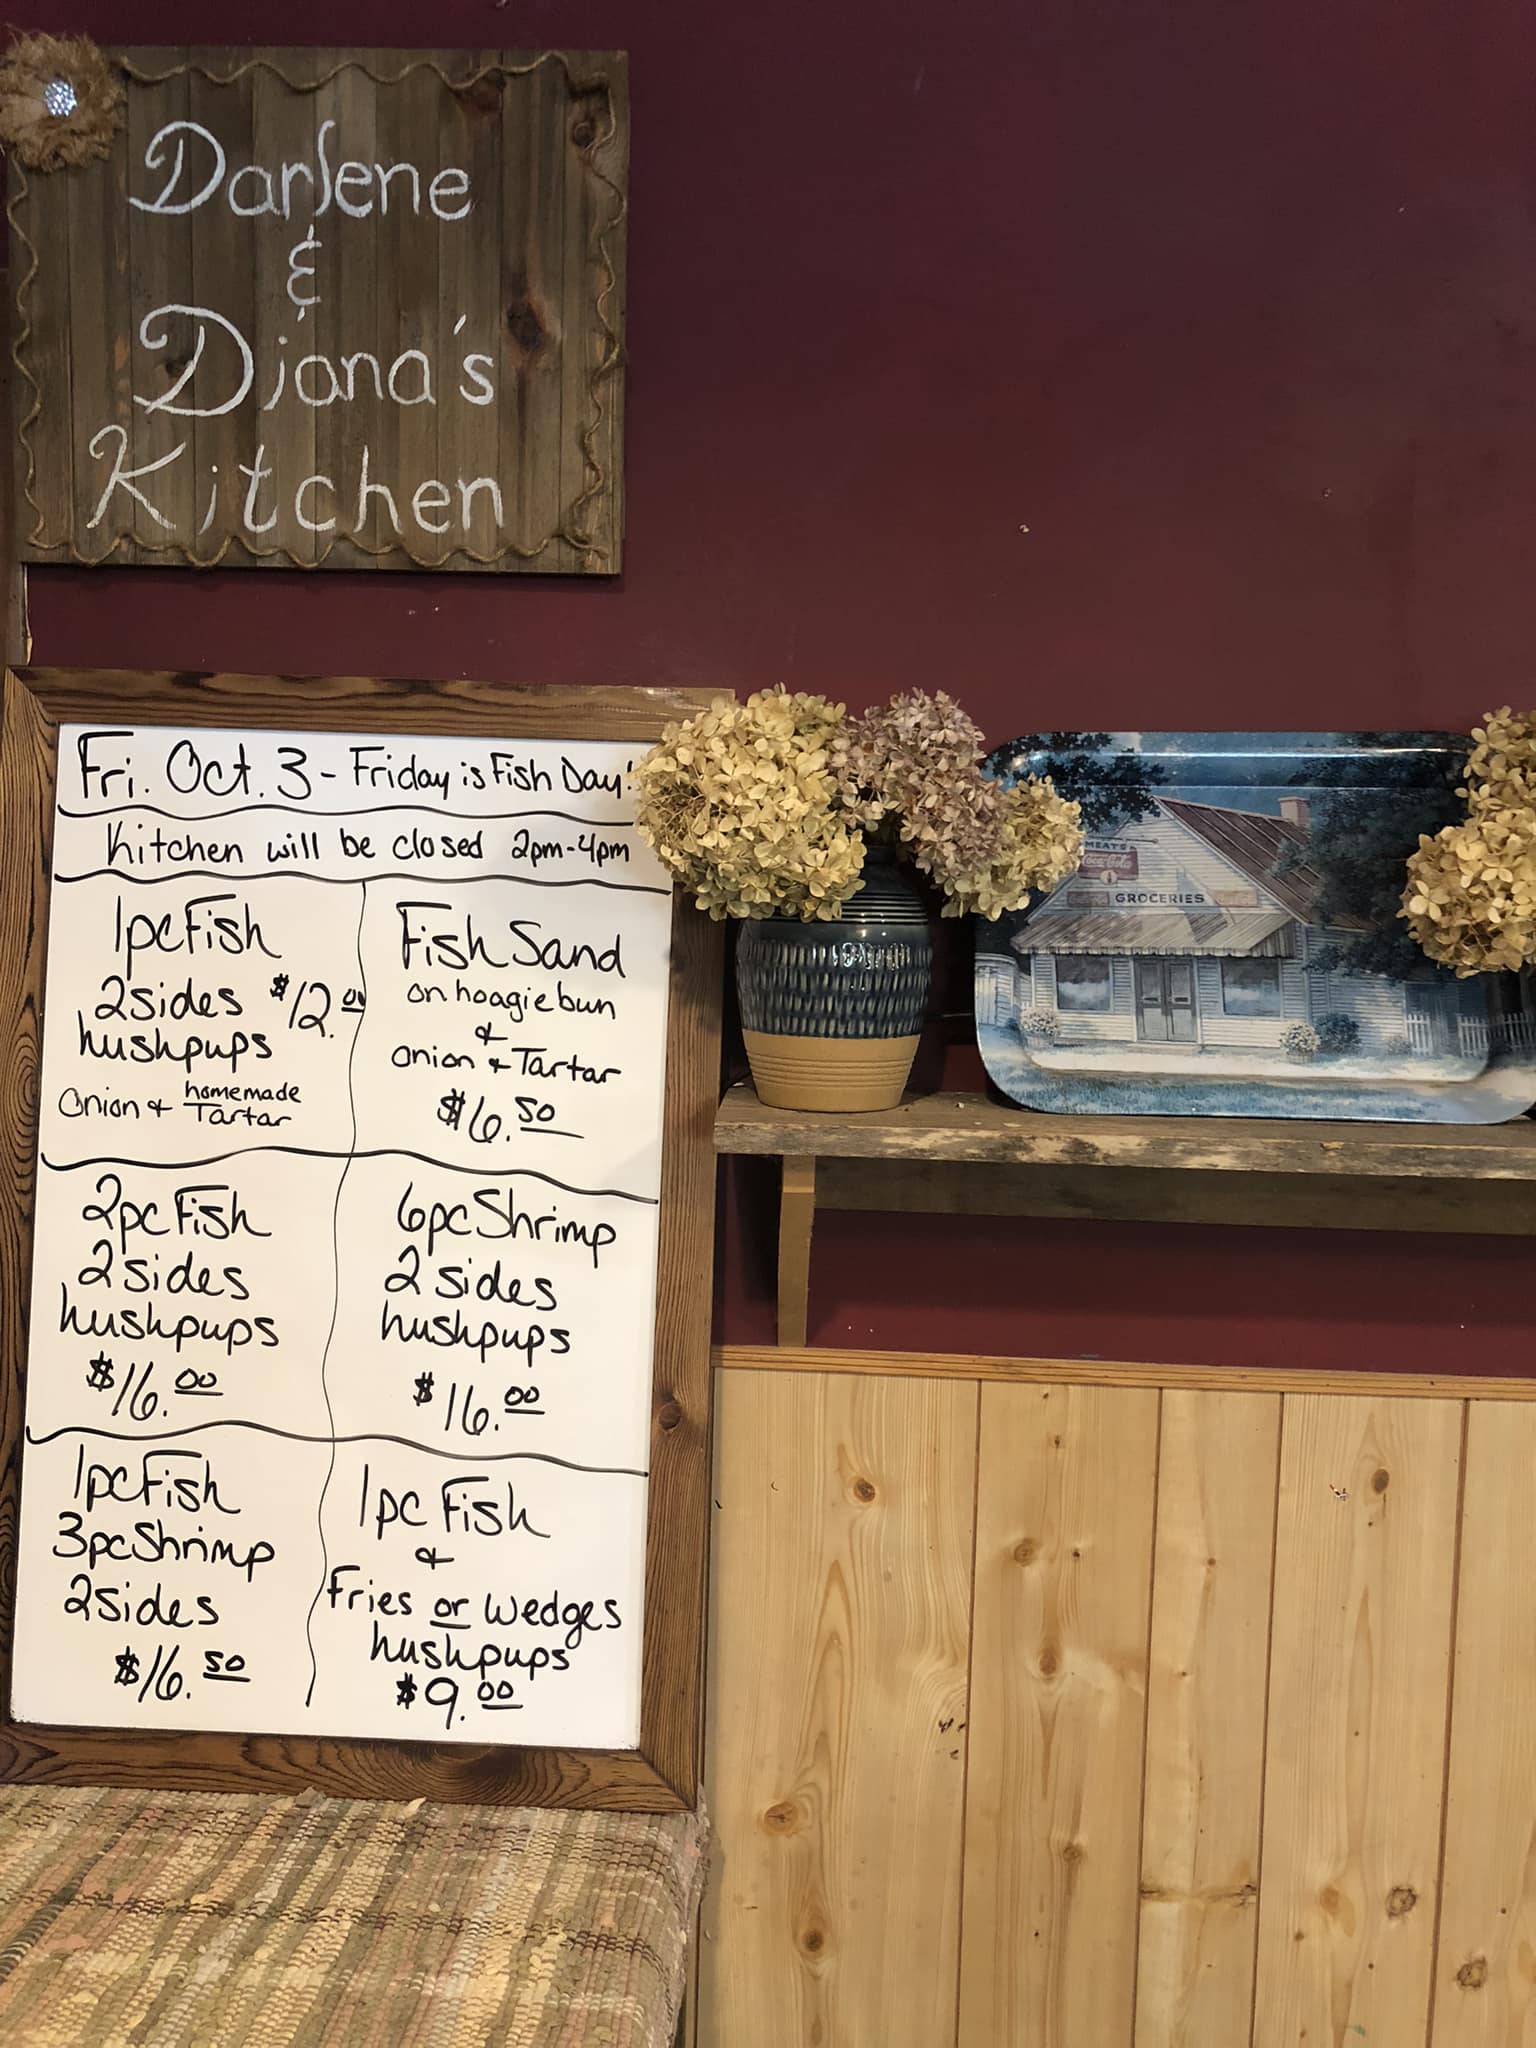 Darlene
&
Diana's
Kitchen
Fri. Oct. 3 - Friday is Fish Day!
Kitchen will be closed 2pm-4pm
1pc Fish
2 sides $12.00
hushpups
Onion & homemade Tartar
Fish Sand
on hoagie bun
&
onion & Tartar
$6.50
2pc Fish
2 sides
hushpups
$16.00
6pc Shrimp
2 sides
hushpups
$16.00
1pc Fish
3pc Shrimp
2 sides
$16.50
1pc Fish
&
Fries or Wedges
hushpups
$9.00
MEATS
Coca-Cola
GROCERIES